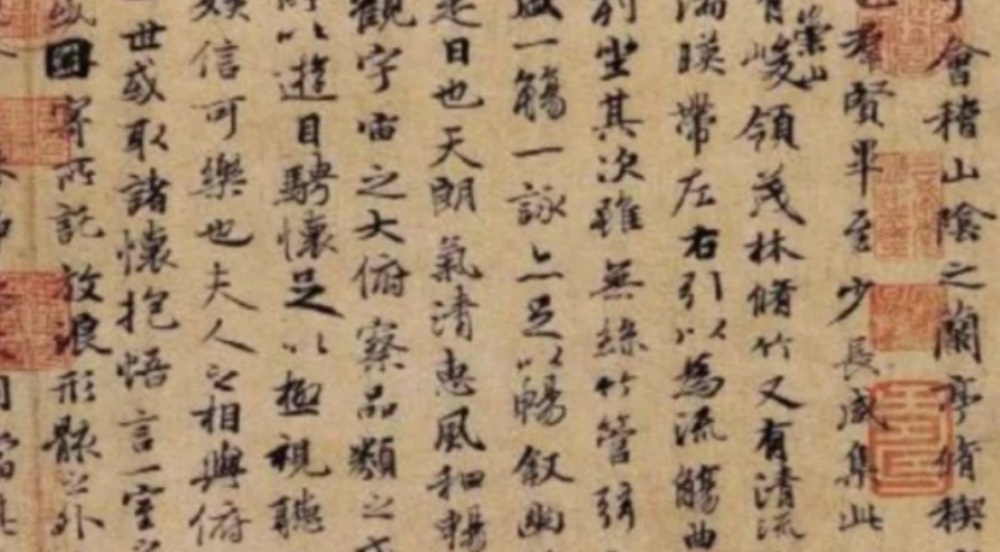 會稽山陰之蘭亭脩禊
群賢畢至少長咸集此
有崇山峻領茂林脩竹又有清流
湍暎帶左右引以為流觴曲
列坐其次雖無絲竹管弦
盛一觴一詠亦足以暢叙幽
是日也天朗氣清惠風和暢
觀宇宙之大俯察品類之
所以遊目騁懷足以極視聽
娛信可樂也夫人之相與俯
世或取諸懷抱悟言一室之
或因寄所託放浪形骸之外